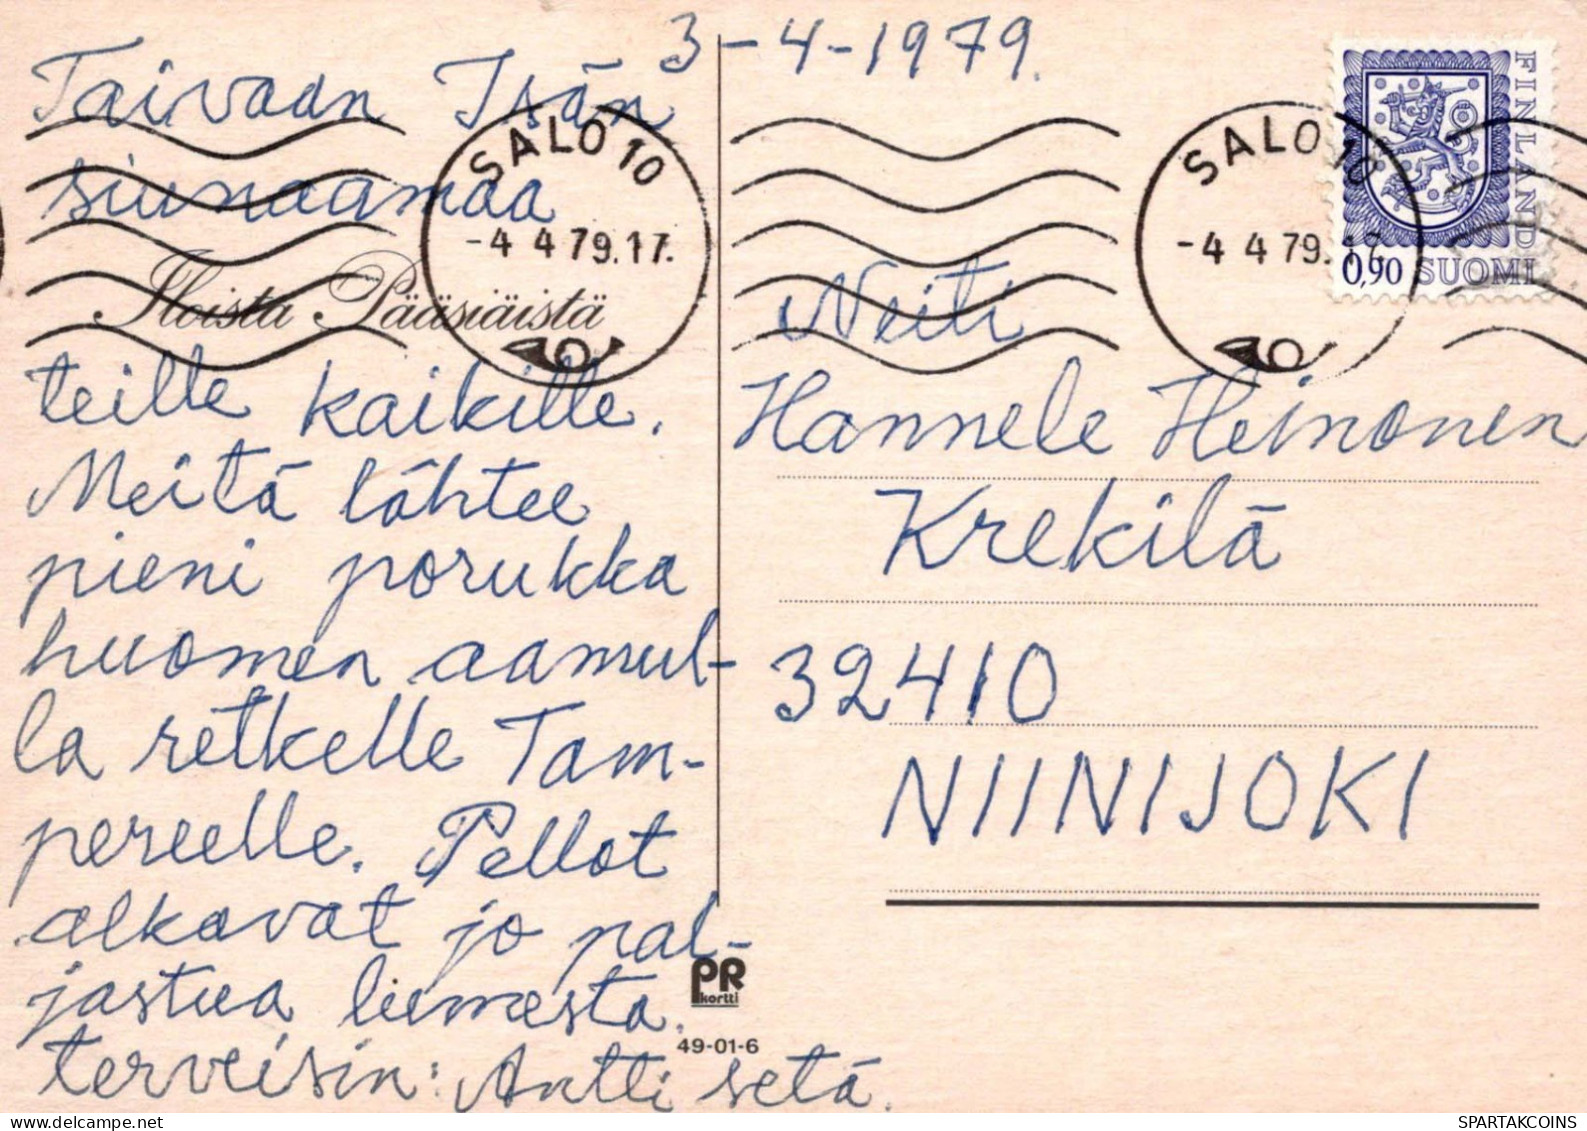 3-4-1979.
Taivaan Isän
siunaamaa
Iloista Pääsiäistä
teille kaikille.
Meitä lähtee
pieni porukka
huomen aamul-
la retkelle Tam-
pereelle. Pellot
alkavat jo pal-
jastua lumesta.
terveisin: Antti setä.
SALO 10
-4 4 79.17.
SALO 10
-4 4 79.17.
FINLAND
0,90 SUOMI
Neiti
Hannele Heinonen
Krekilä
32410
NIINIJOKI
PR
kortti
49-01-6
SPARTAKCOINS